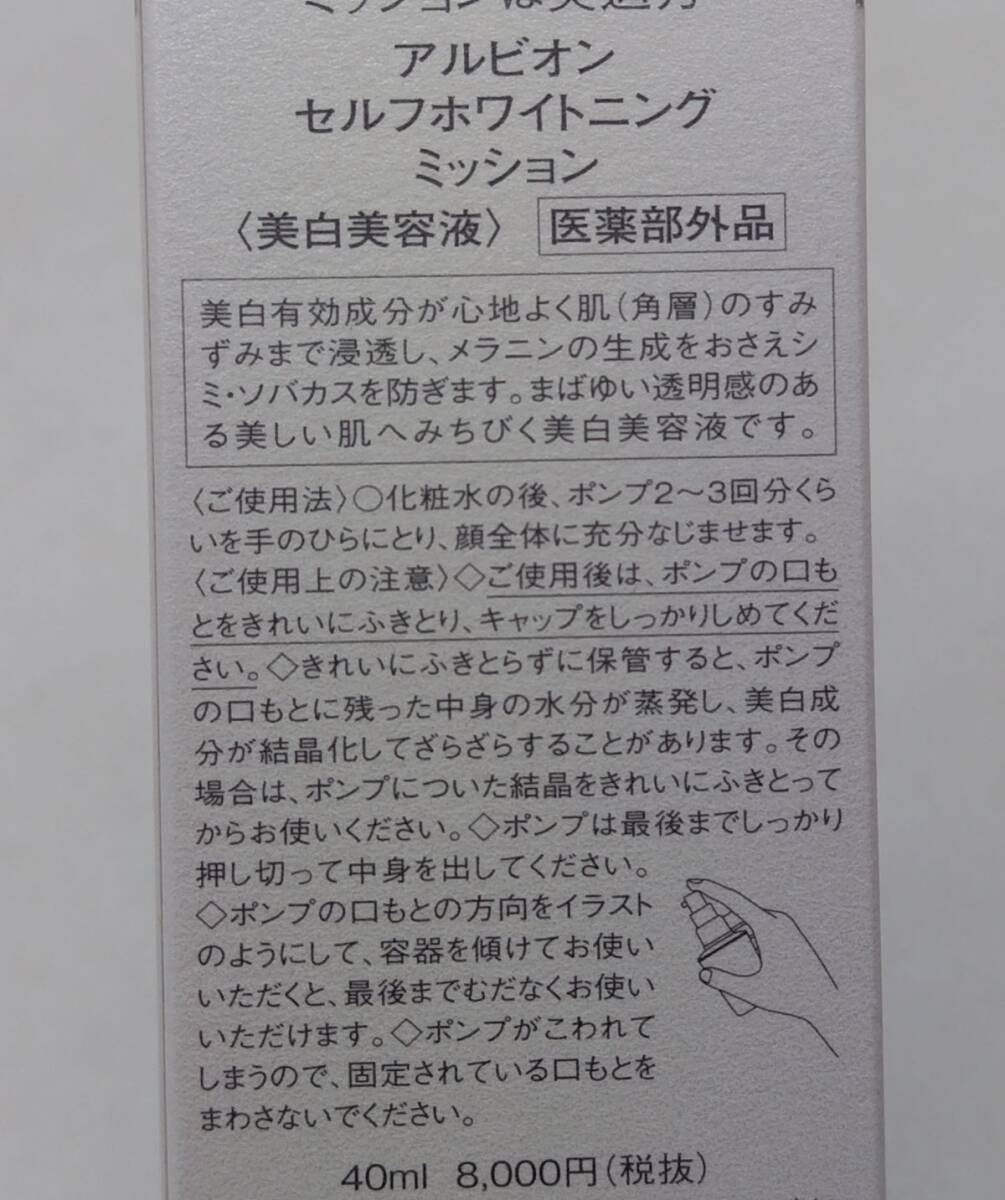 アルビオン
セルフホワイトニング
ミッション
〈美白美容液〉 医薬部外品
美白有効成分が心地よく肌(角層)のすみ
ずみまで浸透し、メラニンの生成をおさえシ
ミ・ソバカスを防ぎます。まばゆい透明感のあ
る美しい肌へみちびく美白美容液です。
〈ご使用法〉○化粧水の後、ポンプ2〜3回分くら
いを手のひらにとり、顔全体に充分なじませます。
〈ご使用上の注意〉◇ご使用後は、ポンプの口も
とをきれいにふきとり、キャップをしっかりしめてくだ
さい。◇きれいにふきとらずに保管すると、ポンプ
の口もとに残った中身の水分が蒸発し、美白成
分が結晶化してざらざらすることがあります。その
場合は、ポンプについた結晶をきれいにふきとって
からお使いください。◇ポンプは最後までしっかり
押し切って中身を出してください。
◇ポンプの口もとの方向をイラスト
のようにして、容器を傾けてお使い
いただくと、最後までむだなくお使い
いただけます。◇ポンプがこわれて
しまうので、固定されている口もとを
まわさないでください。
40ml 8,000円(税抜)